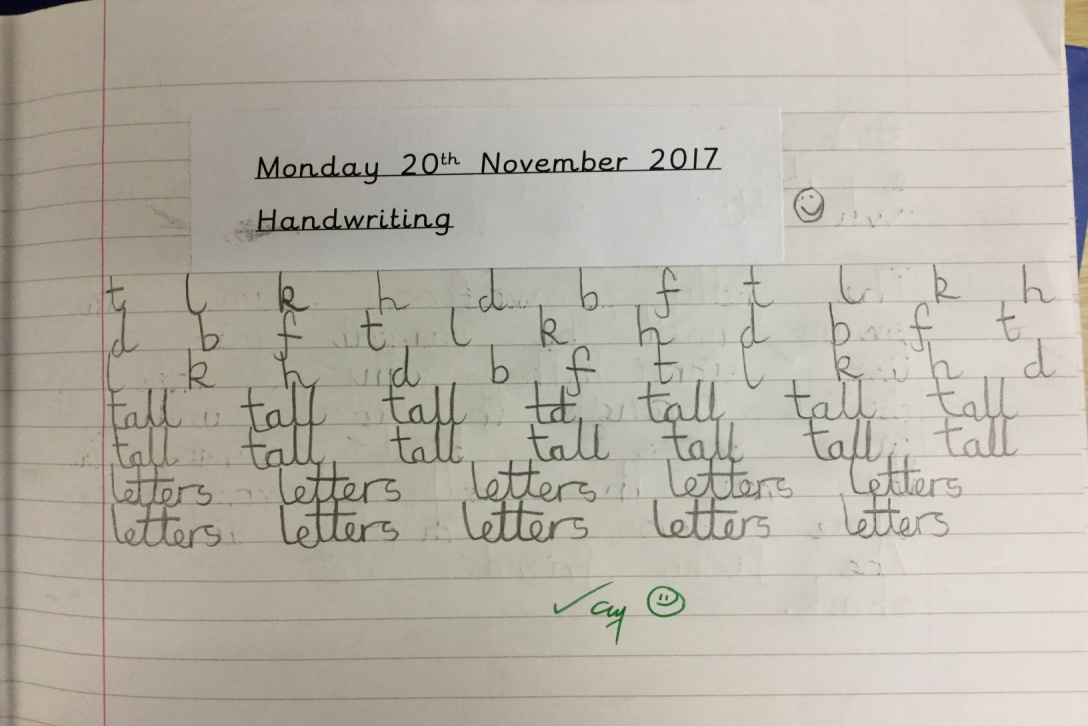 Monday 20th November 2017
Handwriting
t l k h d b f t l k h
d b f t l k h d b f t
l k h d b f t l k h d
tall tall tall td tall tall tall
tall tall tall tall tall tall tall
letters letters letters letters letters
letters letters letters letters letters